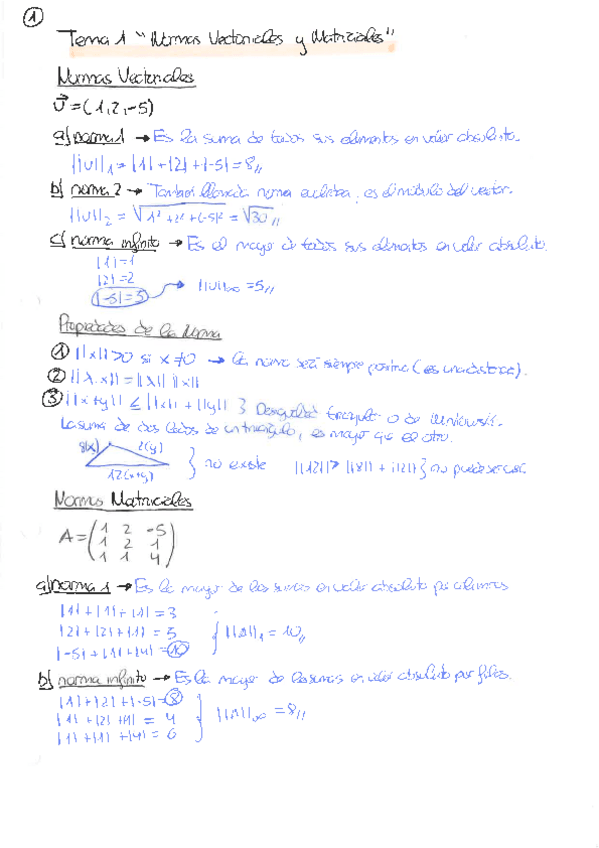 1
Tema 1 "Normas Vectoriales y Matriciales"
Normas Vectoriales
v⃗ = (1,2,-5)
a) norma 1 → Es la suma de todos sus elementos en valor absoluto.
||U||₁ = |1| + |2| + |-5| = 8,,
b) norma 2 → También llamada norma euclídea, es el módulo del vector.
||U||₂ = √1² + 2² + (-5)² = √30,,
c) norma infinito → Es el mayor de todos sus elementos en valor absoluto.
|1| = 1
|2| = 2
|-5| = 5 → ||U||∞ = 5,,
Propiedades de la Norma
1 ||x|| > 0 si x ≠ 0 → la norma será siempre positiva (es una distancia).
2 ||λ·x|| = |λ| ||x||
3 ||x+y|| ≤ ||x|| + ||y|| } Desigualdad triangular o de Minkowski.
La suma de dos lados de un triángulo, es mayor que el otro.
8(x) 2(y)
12(x+y) } no existe ||12|| > ||8|| + ||2|| } no puede ser así.
Normas Matriciales
A = (1 2 -5
1 2 1
1 1 4)
a) norma 1 → Es la mayor de las sumas en valor absoluto por columnas
|1| + |1| + |1| = 3
|2| + |2| + |1| = 5 } ||A||₁ = 10,,
|-5| + |1| + |4| = 10
b) norma infinito → Es la mayor de las sumas en valor absoluto por filas.
|1| + |2| + |-5| = 8
|1| + |2| + |1| = 4 } ||A||∞ = 8,,
|1| + |1| + |4| = 6